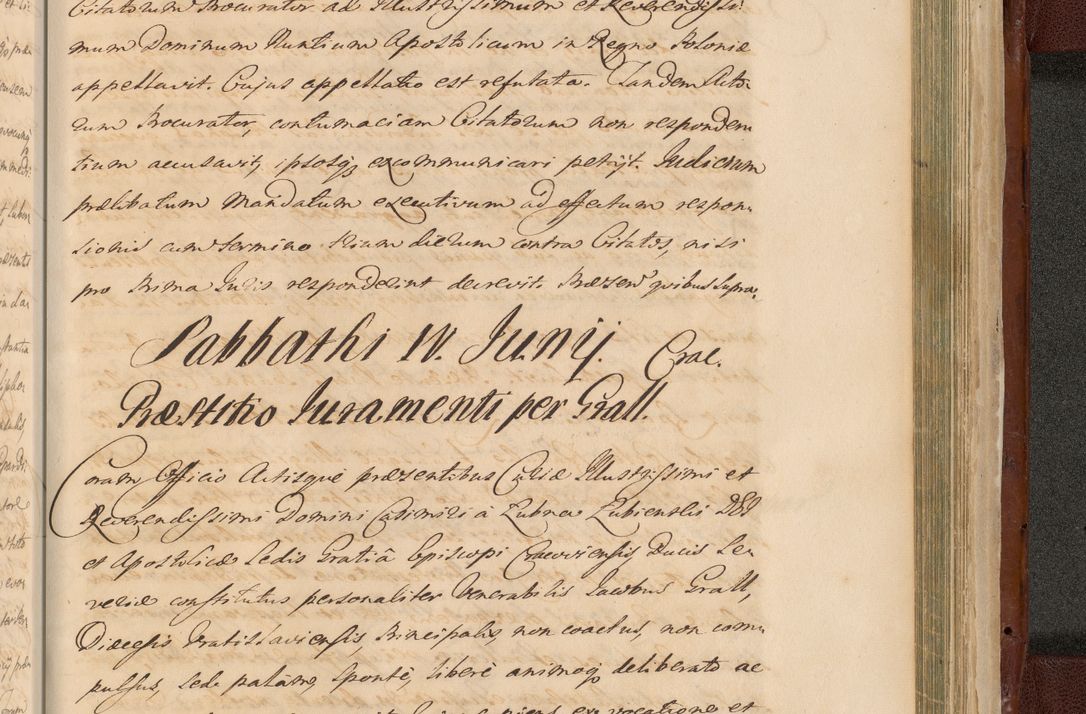 Citatorum Procurator ad Illustrissimum et Reverendissi
mum Dominum Nuntium Apostolicum in Regno Poloniæ
appellavit. Cujus appellatio est refutata. Tandem Acto-
rum Procurator, contumaciam Citatorum non responden-
tium accusavit, ipsosq; excommunicari petijt. Judicium
prælibatum Mandatum executivum ad effectum respon-
sionis cum termino trium dierum contra Citatos, nisi
pro Prima Juris responderint decrevit. Præsen. quibus supra.
Sabbathi IV. Junij. Crac.
Præstitio Juramenti per Grall.
Coram Officio Actisque præsentibus Curiæ Illustrissimi et
Reverendissimi Domini Casimiri à Lubna Lubienski DEI
et Apostolicæ Sedis Gratiâ Episcopi Cracoviensis Ducis Se-
veriæ constitutus personaliter Venerabilis Jacobus Grall,
Diæcesis Vratislaviensis, Principalis, non coactus, non com-
pulsus, sed palam, sponte, libere animoq; deliberato ac